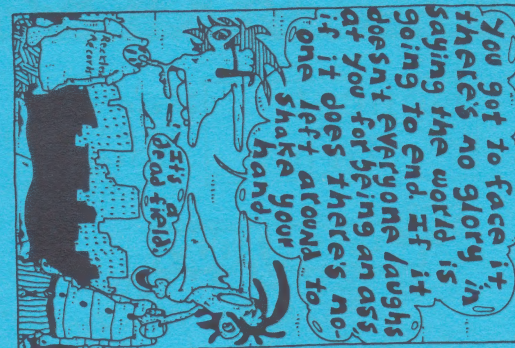 you got to face it,
there's no glory in
saying the world is
going to end. If it
doesn't everyone laughs
at you for being an ass,
if it does there's no-
one left around to
shake your
hand.
It's a
dead field.